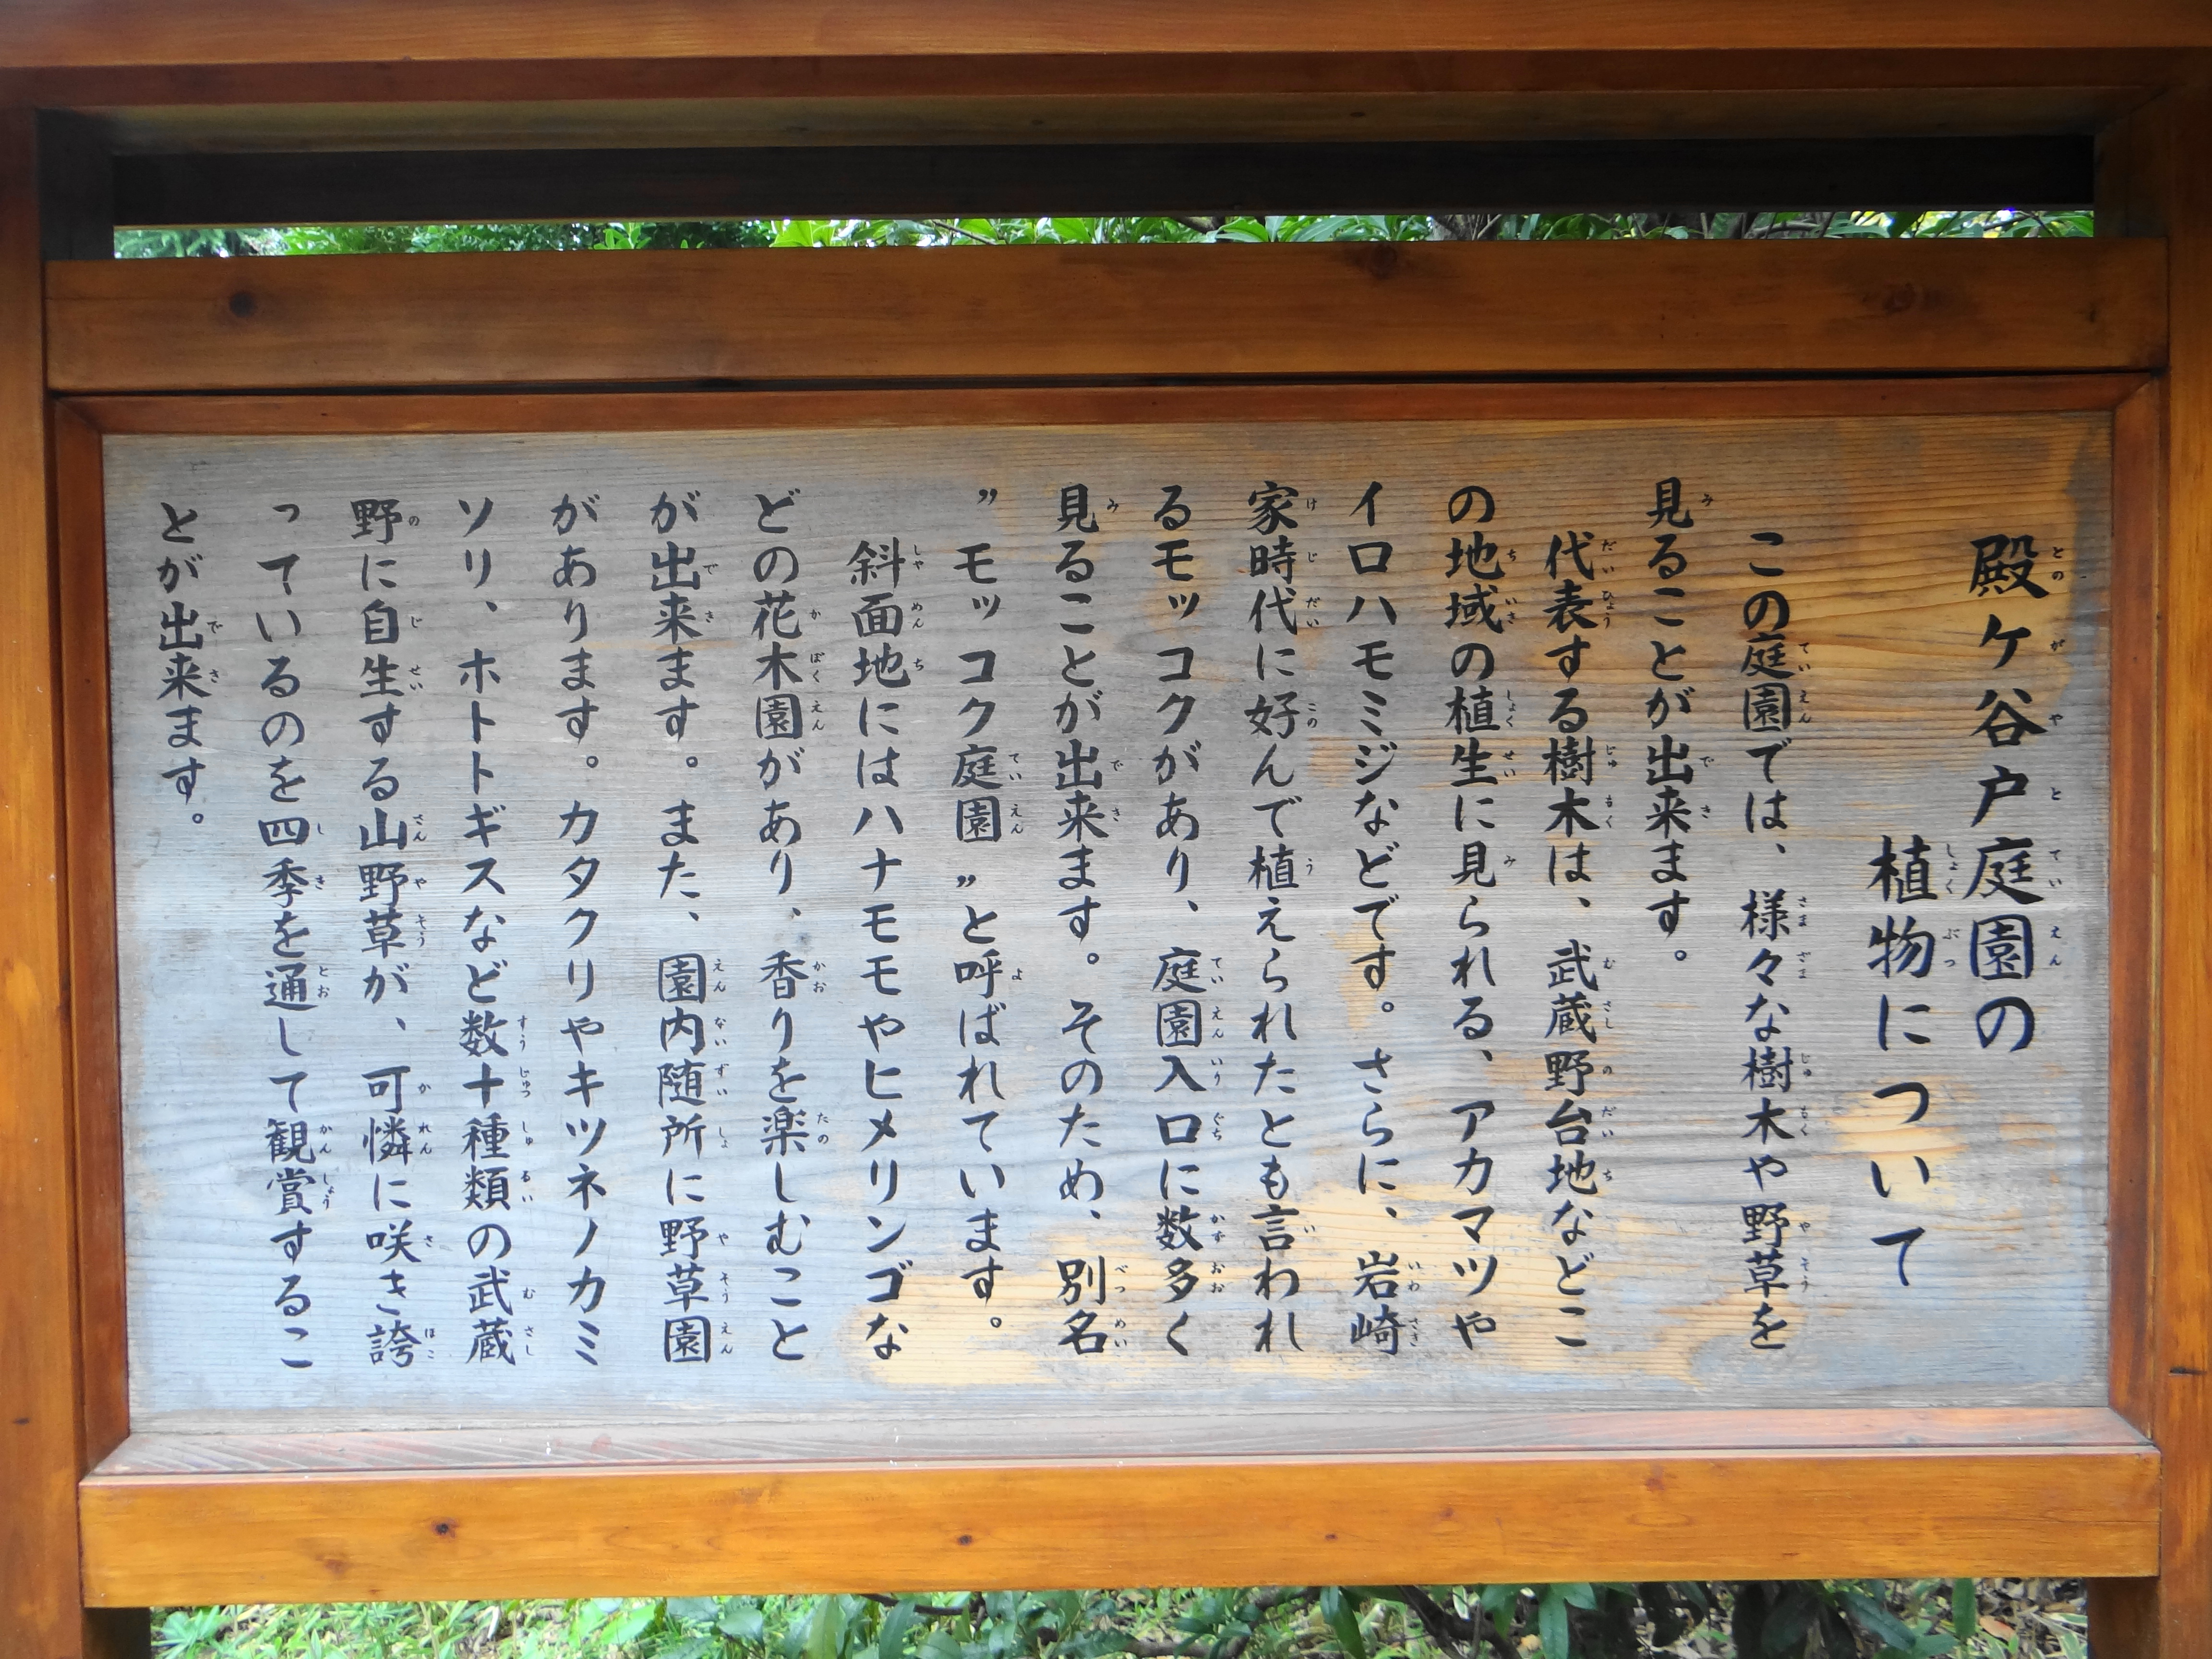 殿ケ谷戸庭園の
植物について
この庭園では、様々な樹木や野草を
見ることが出来ます。
代表する樹木は、武蔵野台地などこ
の地域の植生に見られる、アカマツや
イロハモミジなどです。さらに、岩崎
家時代に好んで植えられたとも言われ
るモッコクがあり、庭園入口に数多く
見ることが出来ます。そのため、別名
〃モッコク庭園〃と呼ばれています。
斜面地にはハナモモやヒメリンゴな
どの花木園があり、香りを楽しむこと
が出来ます。また、園内随所に野草園
があります。カタクリやキツネノカミ
ソリ、ホトトギスなど数十種類の武蔵
野に自生する山野草が、可憐に咲き誇
っているのを四季を通して観賞するこ
とが出来ます。